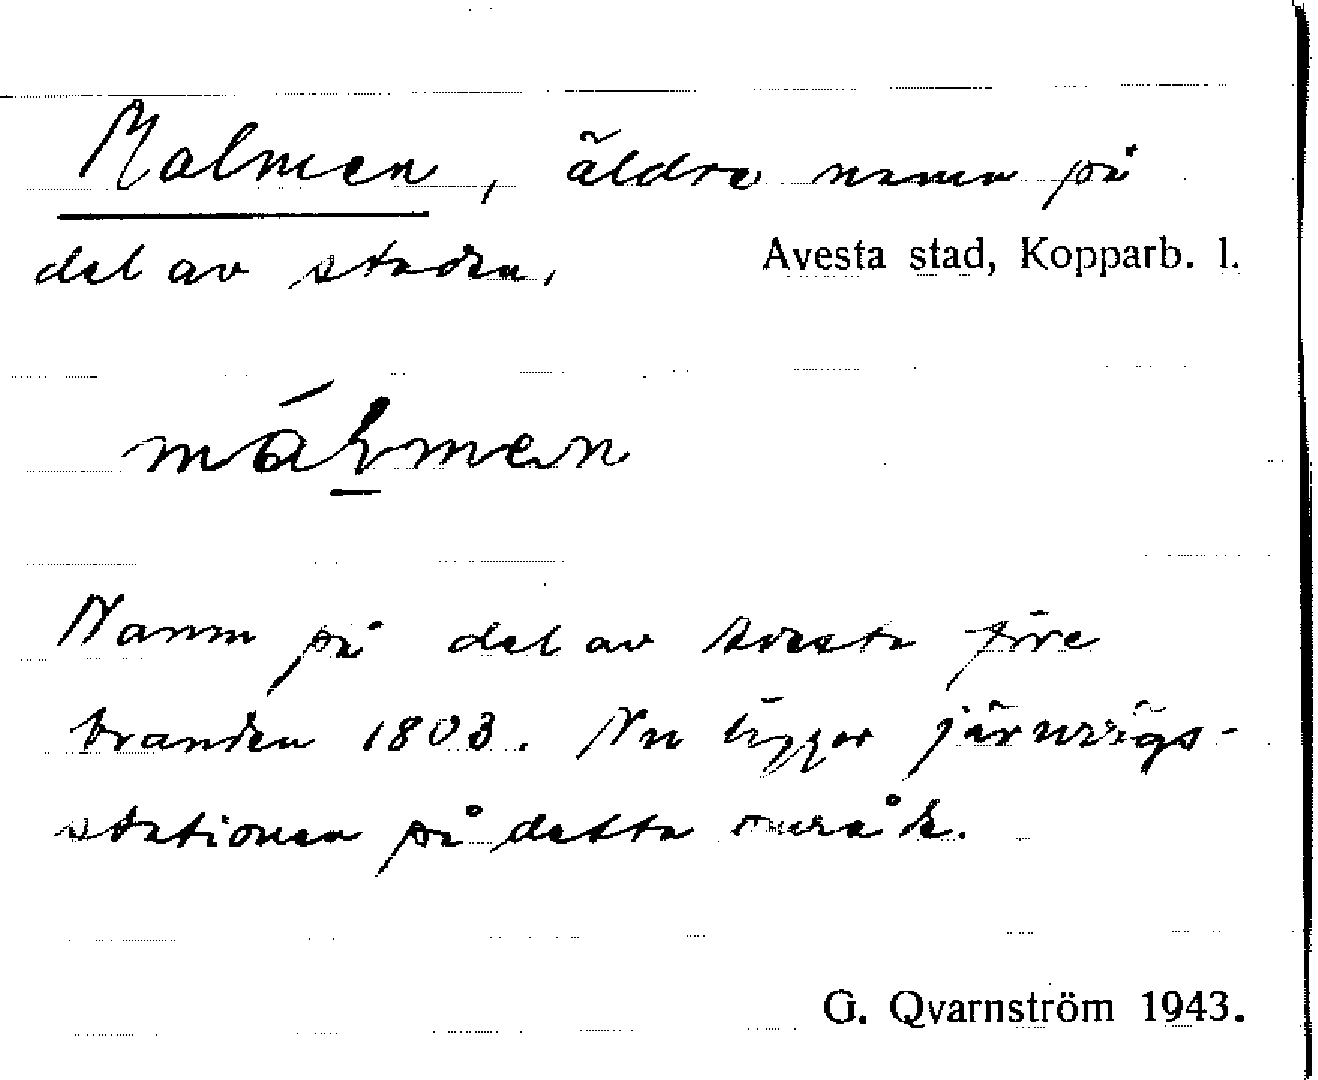 Malmen, äldre namn på
del av staden,
Avesta stad, Kopparb. l.
málmen
Namn på del av Avesta före
branden 1803. Nu ligger järnvägs-
stationen på detta område.
G. Qvarnström 1943.